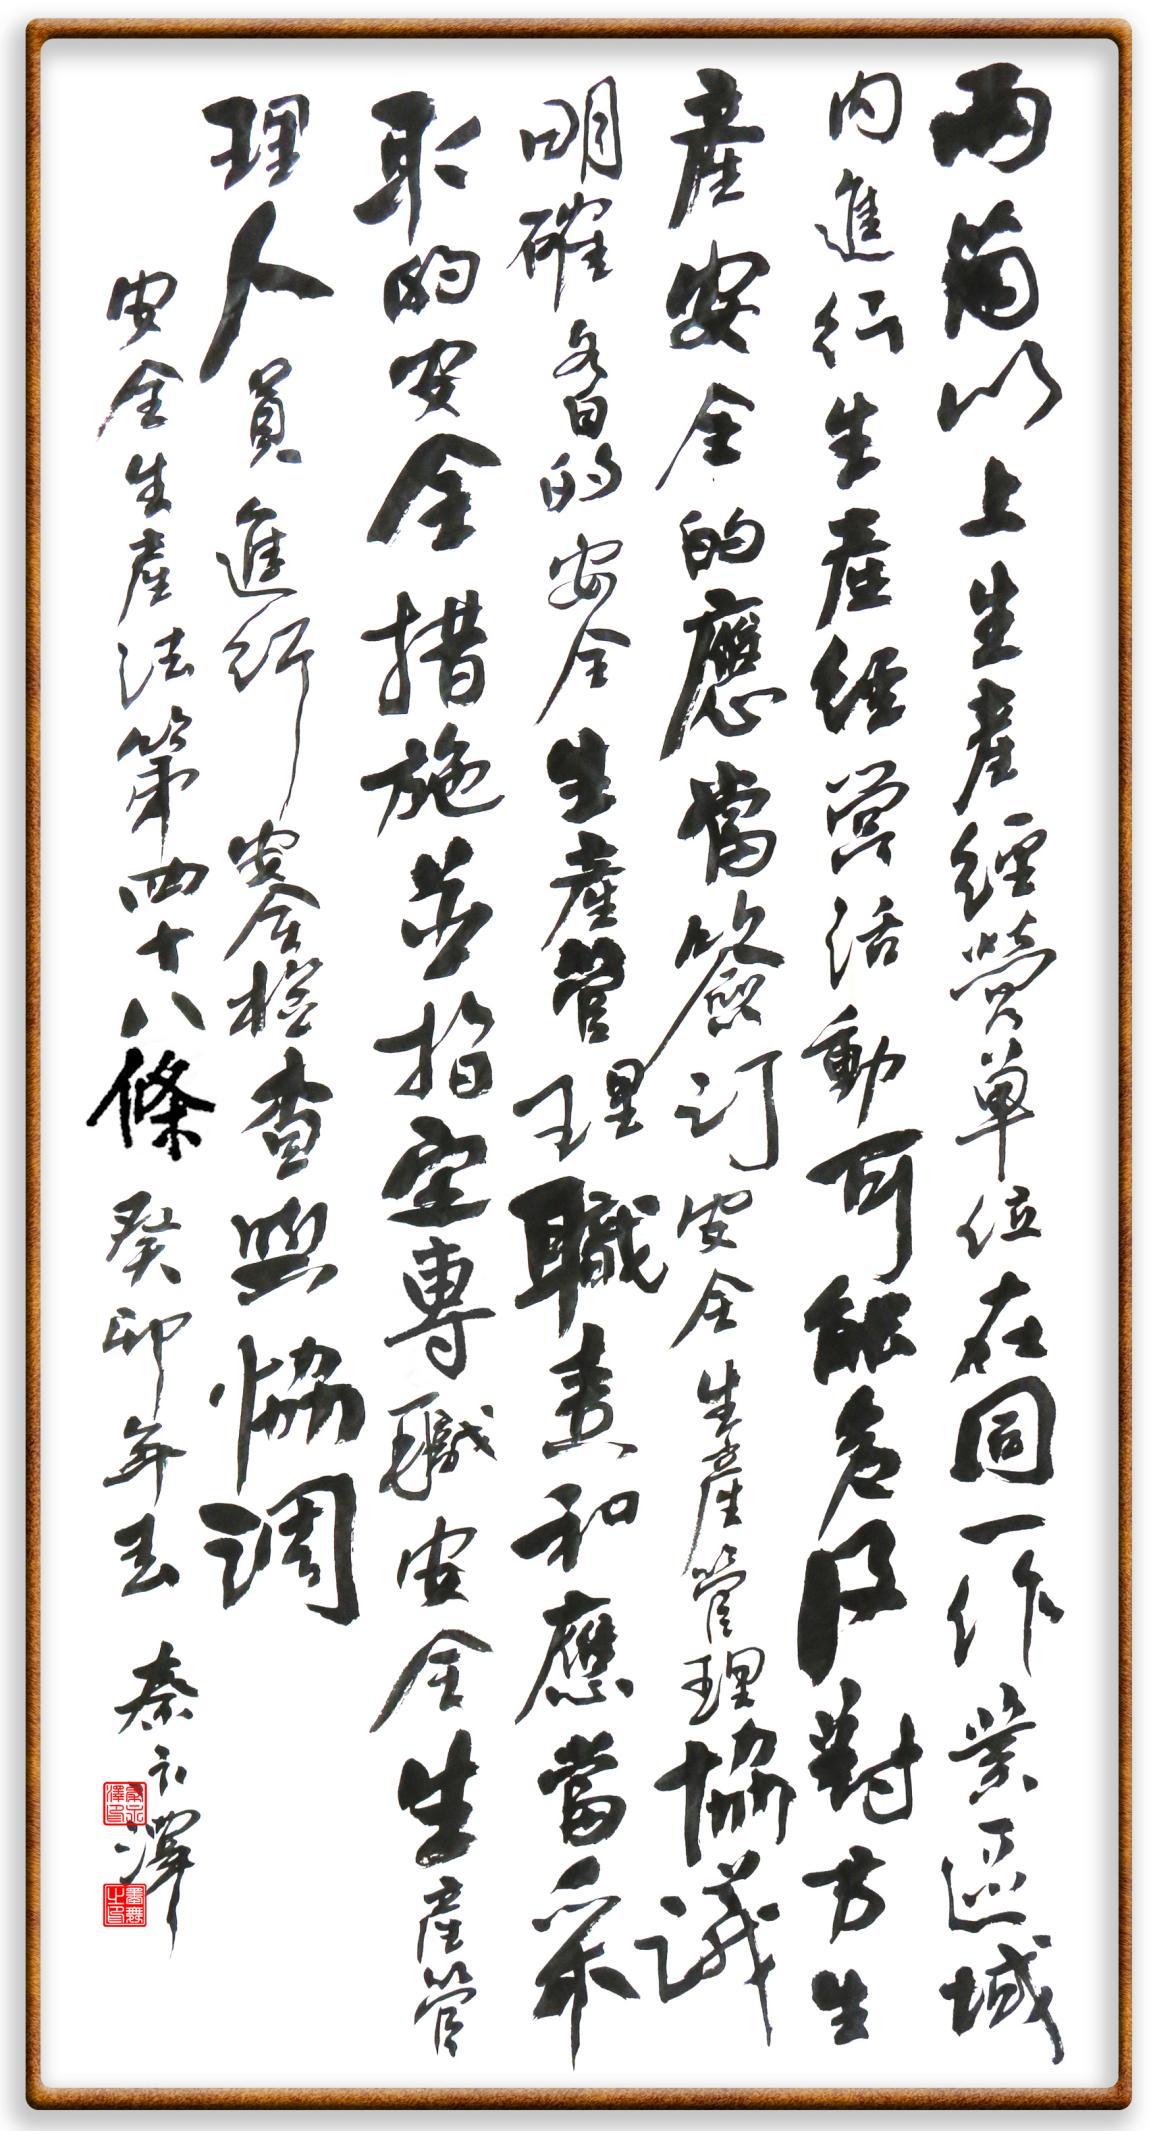 兩箇以上生產經營單位在同一作業區域
內進行生產經營活動可能危及對方生
產安全的應當簽訂安全生產管理協議
明確各自的安全生產管理職責和應當采
取的安全措施並指定專職安全生產管
理人員進行安全檢查與協調
安全生產法第四十八條 癸卯年 秦永澤